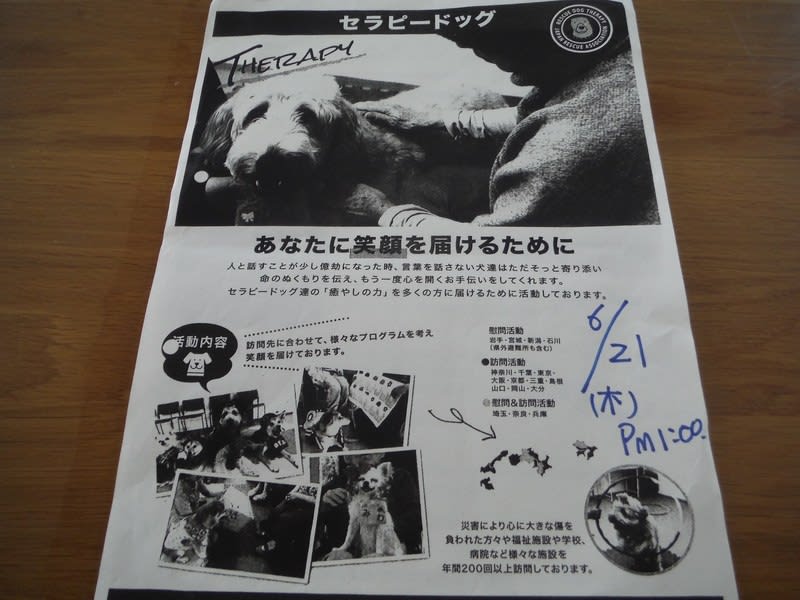 セラピードッグ
RESCUE DOG THERAPY
JAPAN RESCUE ASSOCIATION
THERAPY
あなたに笑顔を届けるために
人と話すことが少し億劫になった時、言葉を話さない犬達はただそっと寄り添い
命のぬくもりを伝え、もう一度心を開くお手伝いをしてくれます。
セラピードッグ達の「癒やしの力」を多くの方に届けるために活動しております。
活動内容
訪問先に合わせて、様々なプログラムを考え
笑顔を届けております。
慰問活動
岩手・宮城・新潟・石川
(県外避難所も含む)
●訪問活動
神奈川・千葉・東京・
大阪・京都・三重・島根
山口・岡山・大分
慰問&訪問活動
埼玉・奈良・兵庫
6/21
(木)
PM1:00.
災害により心に大きな傷を
負われた方々や福祉施設や学校、
病院など様々な施設を
年間200回以上訪問しております。